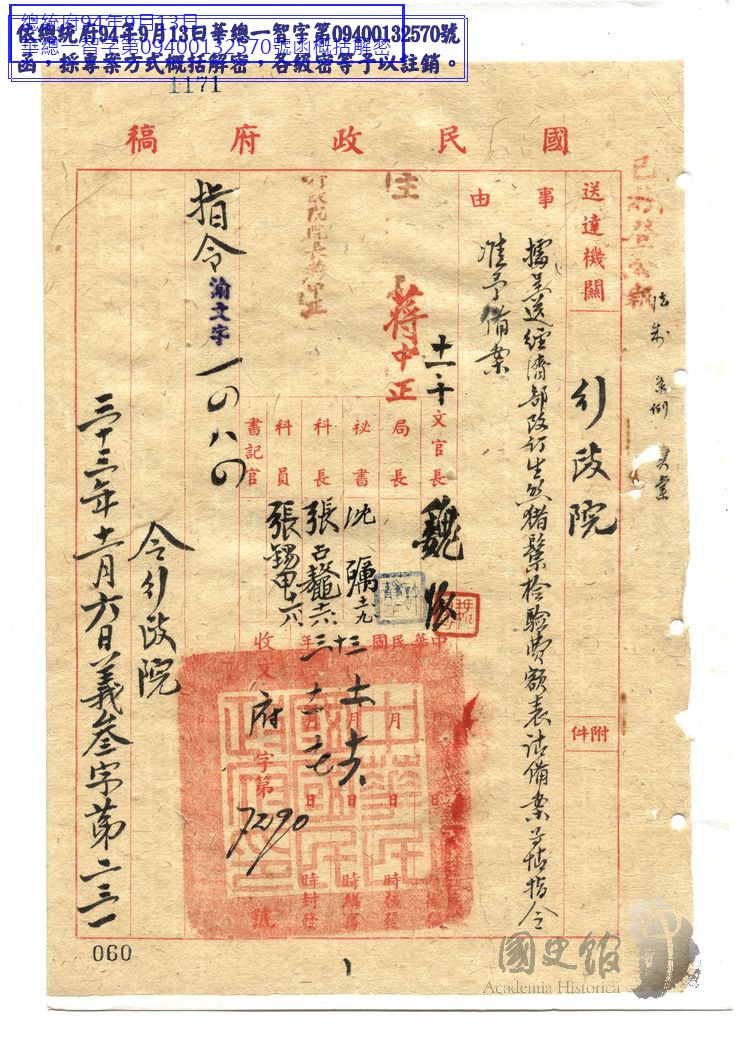 總統府94年9月13日
華總一智字第09400132570號函概括解密
依總統府94年9月13日華總一智字第09400132570號
函，採專案方式概括解密，各級密等予以註銷。
1171
國民政府稿
已抄登公報
法制
送達機關
行政院
附件
事由
據呈送經濟部改訂生熟豬鬃檢驗費額表請備案等情指令
准予備案
文官長
魏
局長
秘書
沈
科長
張
科員
張
書記官
蔣中正
行政院院長蔣中正
中華民國三十三年
月日時核發
十一月十六日時繕寫
十一月七日時封發
收文府字第7290號
指令渝文字一〇八〇
令行政院
三十三年十一月六日義叁字第二三一
060
1
國史館
Academia Historica